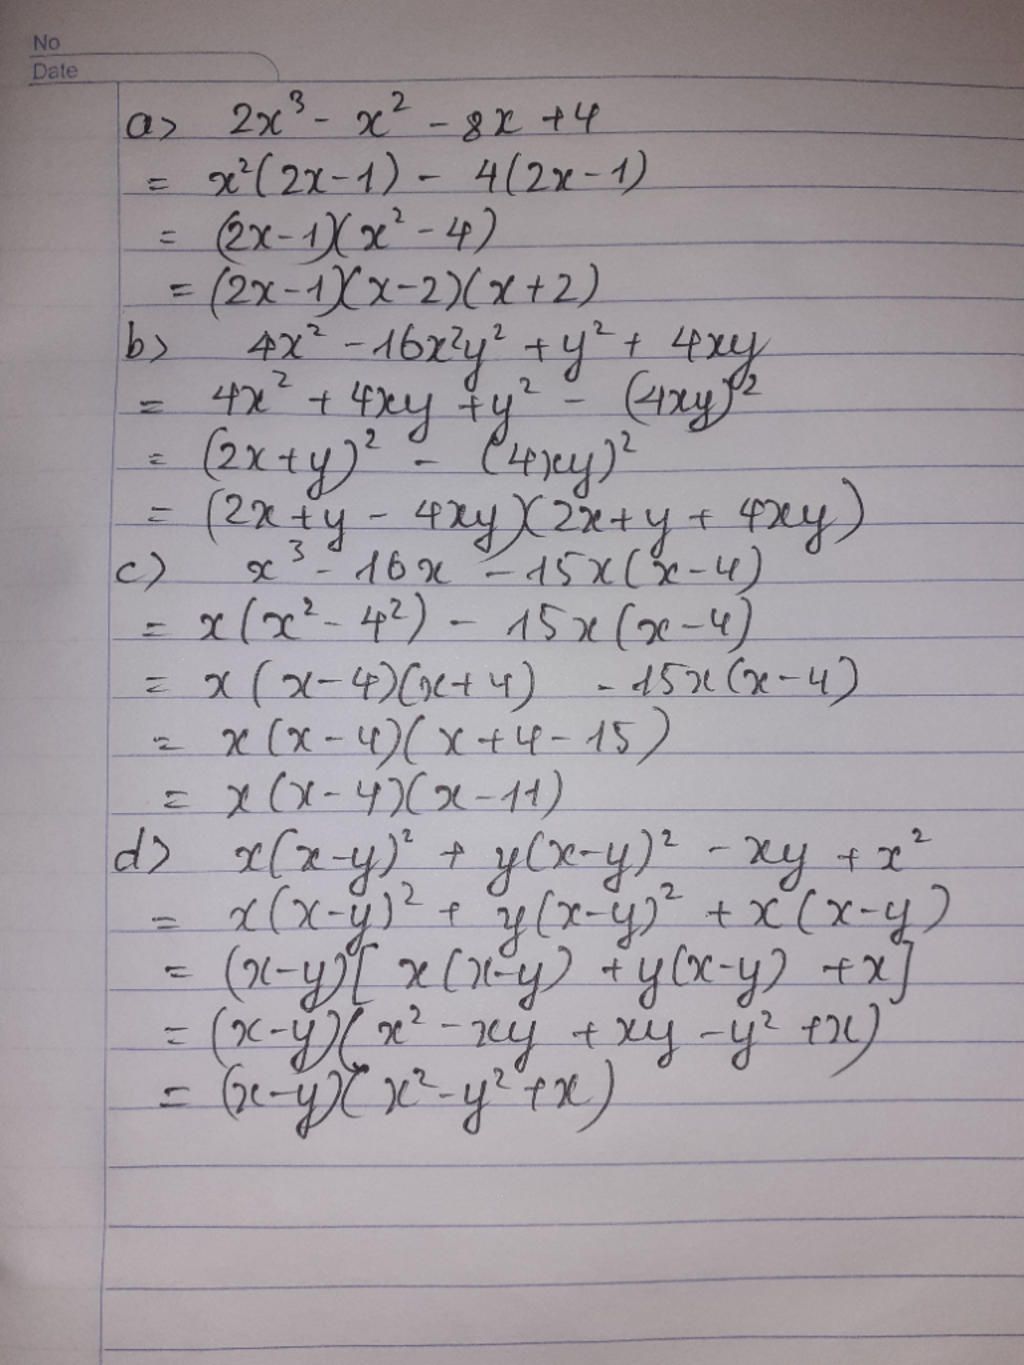 No
Date
a> 2x³ - x² - 8x + 4
= x²(2x-1) - 4(2x-1)
= (2x-1)(x² - 4)
= (2x-1)(x-2)(x+2)
b> 4x² - 16x²y² + y² + 4xy
= 4x² + 4xy + y² - (4xy)²
= (2x+y)² - (4xy)²
= (2x+y - 4xy)(2x+y + 4xy)
c) x³ - 16x - 15x(x-4)
= x(x² - 4²) - 15x(x-4)
= x(x-4)(x+4) - 15x(x-4)
= x(x-4)(x+4-15)
= x(x-4)(x-11)
d> x(x-y)² + y(x-y)² - xy + x²
= x(x-y)² + y(x-y)² + x(x-y)
= (x-y)[x(x-y) + y(x-y) + x]
= (x-y)(x² - xy + xy - y² + x)
= (x-y)(x² - y² + x)